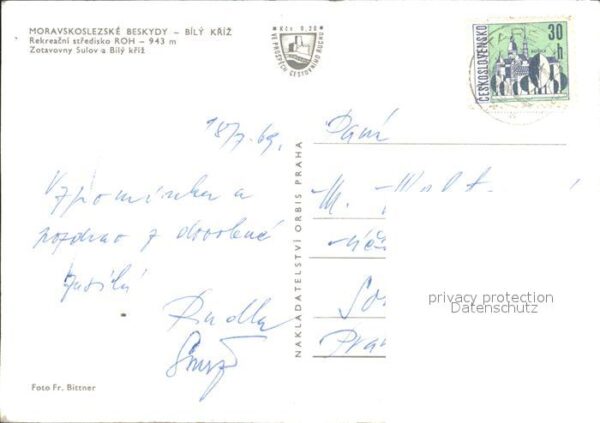 MORAVSKOSLEZSKÉ BESKYDY – BÍLÝ KŘÍŽ
Rekreační středisko ROH – 943 m
Zotavovny Sulov a Bílý kříž
Kčs 0,20
VE PROSPĚCH CESTOVNÍHO RUCHU
ČESKOSLOVENSKO
30 h
18/7. 69.
Paní
M.
Vzpomínku a
pozdrav z dovolené
zasílá
NAKLADATELSTVÍ ORBIS PRAHA
privacy protection
Datenschutz
Foto Fr. Bittner